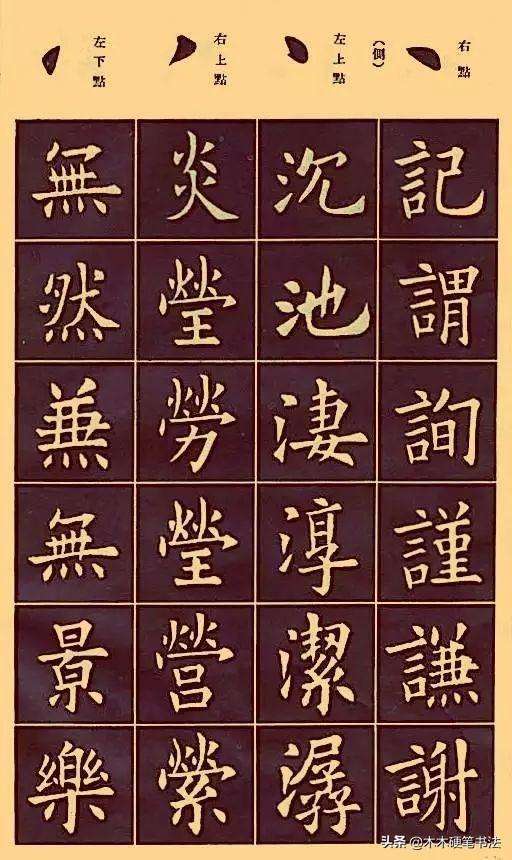 右點
(側)
左上點
右上點
左下點
記謂詢謹謙謝
沉池淒淳潔潺
炎瑩勞瑩營縈
無然兼無景樂
头条 @木木硬笔书法